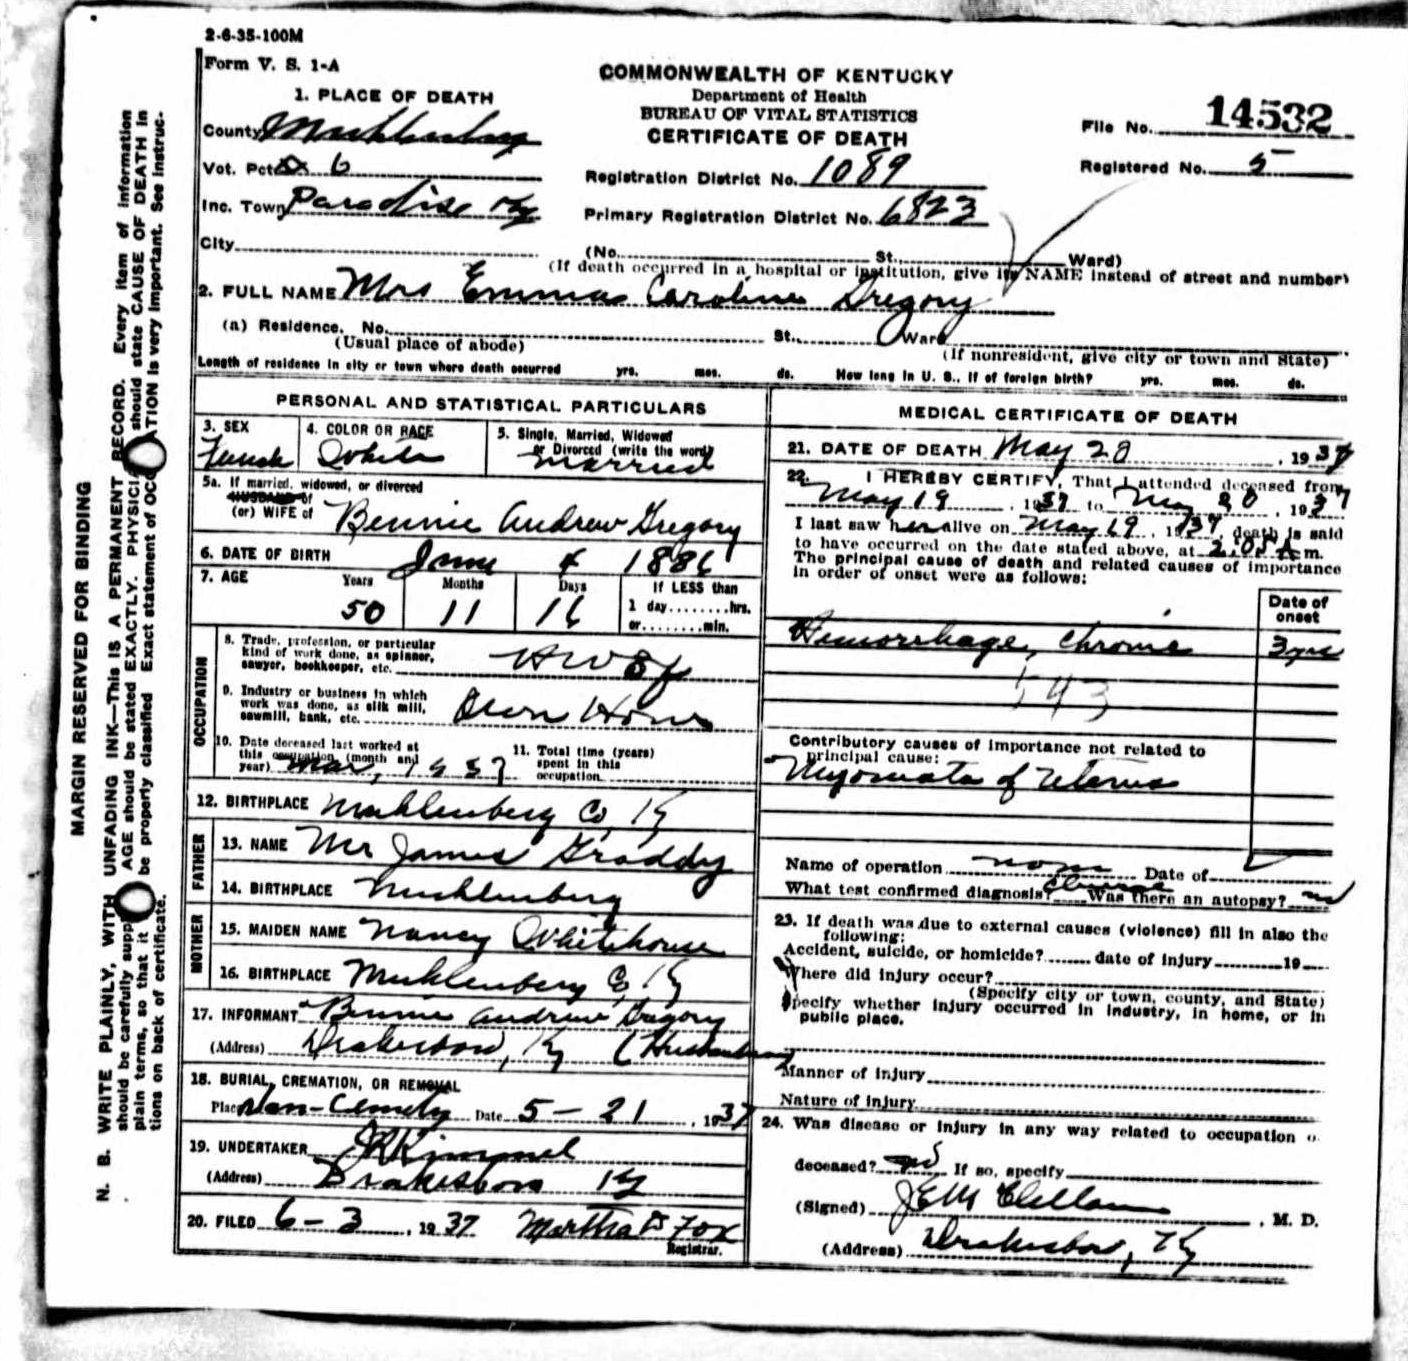 2-6-35-100M
Form V. S. 1-A
COMMONWEALTH OF KENTUCKY
Department of Health
BUREAU OF VITAL STATISTICS
CERTIFICATE OF DEATH
File No. 14532
Registered No. 5
1. PLACE OF DEATH
County Muhlenberg
Vot. Pct. 6
Inc. Town Paradise Ky
City
Registration District No. 1089
Primary Registration District No. 6823
(No. St. Ward)
(If death occurred in a hospital or institution, give its NAME instead of street and number)
2. FULL NAME Mrs Emma Caroline Gregory
(a) Residence. No. St. Ward
(Usual place of abode)
(If nonresident, give city or town and State)
Length of residence in city or town where death occurred yrs. mos. ds. How long in U. S., if of foreign birth? yrs. mos. ds.
PERSONAL AND STATISTICAL PARTICULARS
3. SEX
Female
4. COLOR OR RACE
White
5. Single, Married, Widowed
or Divorced (write the word)
married
5a. If married, widowed, or divorced
HUSBAND of
(or) WIFE of Bennie Andrew Gregory
6. DATE OF BIRTH June 4 1886
7. AGE Years Months Days If LESS than
50 11 16 1 day........hrs.
or........min.
OCCUPATION
8. Trade, profession, or particular
kind of work done, as spinner,
sawyer, bookkeeper, etc.
9. Industry or business in which
work was done, as silk mill,
sawmill, bank, etc. Own Home
10. Date deceased last worked at
this occupation (month and
year) Mar, 1937
11. Total time (years)
spent in this
occupation
12. BIRTHPLACE Muhlenberg Co, Ky
FATHER
13. NAME Mr James Graddy
14. BIRTHPLACE Muhlenberg
MOTHER
15. MAIDEN NAME Nancy Whitehouse
16. BIRTHPLACE Muhlenberg Co, Ky
17. INFORMANT Bennie Andrew Gregory
(Address) Drakesboro, Ky (Husband)
18. BURIAL, CREMATION, OR REMOVAL
Place Cemetry Date 5-21, 1937
19. UNDERTAKER Kimmel
(Address) Drakesboro Ky
20. FILED 6-3, 1937 Martha Fox
Registrar.
MEDICAL CERTIFICATE OF DEATH
21. DATE OF DEATH May 20, 1937
22. I HEREBY CERTIFY, That I attended deceased from
May 19, 1937 to May 20, 1937
I last saw her alive on May 19, 1937, death is said
to have occurred on the date stated above, at m.
The principal cause of death and related causes of importance
in order of onset were as follows:
Date of
onset
Hemorrhage, Chronic 3 yrs
543
Contributory causes of importance not related to
principal cause:
Myomata of Uterus
Name of operation none Date of
What test confirmed diagnosis? Was there an autopsy? no
23. If death was due to external causes (violence) fill in also the
following:
Accident, suicide, or homicide? date of injury 19
Where did injury occur?
(Specify city or town, county, and State)
Specify whether injury occurred in industry, in home, or in
public place.
Manner of injury
Nature of injury
24. Was disease or injury in any way related to occupation o
deceased? no If so, specify
(Signed) J E McClellan, M. D.
(Address) Drakesboro, Ky
MARGIN RESERVED FOR BINDING
N. B. WRITE PLAINLY, WITH UNFADING INK—THIS IS A PERMANENT RECORD. Every item of information
should be carefully supp AGE should be stated EXACTLY. PHYSICIA should state CAUSE OF DEATH in
plain terms, so that it be properly classified Exact statement of OCC TION is very important. See instruc-
tions on back of certificate.